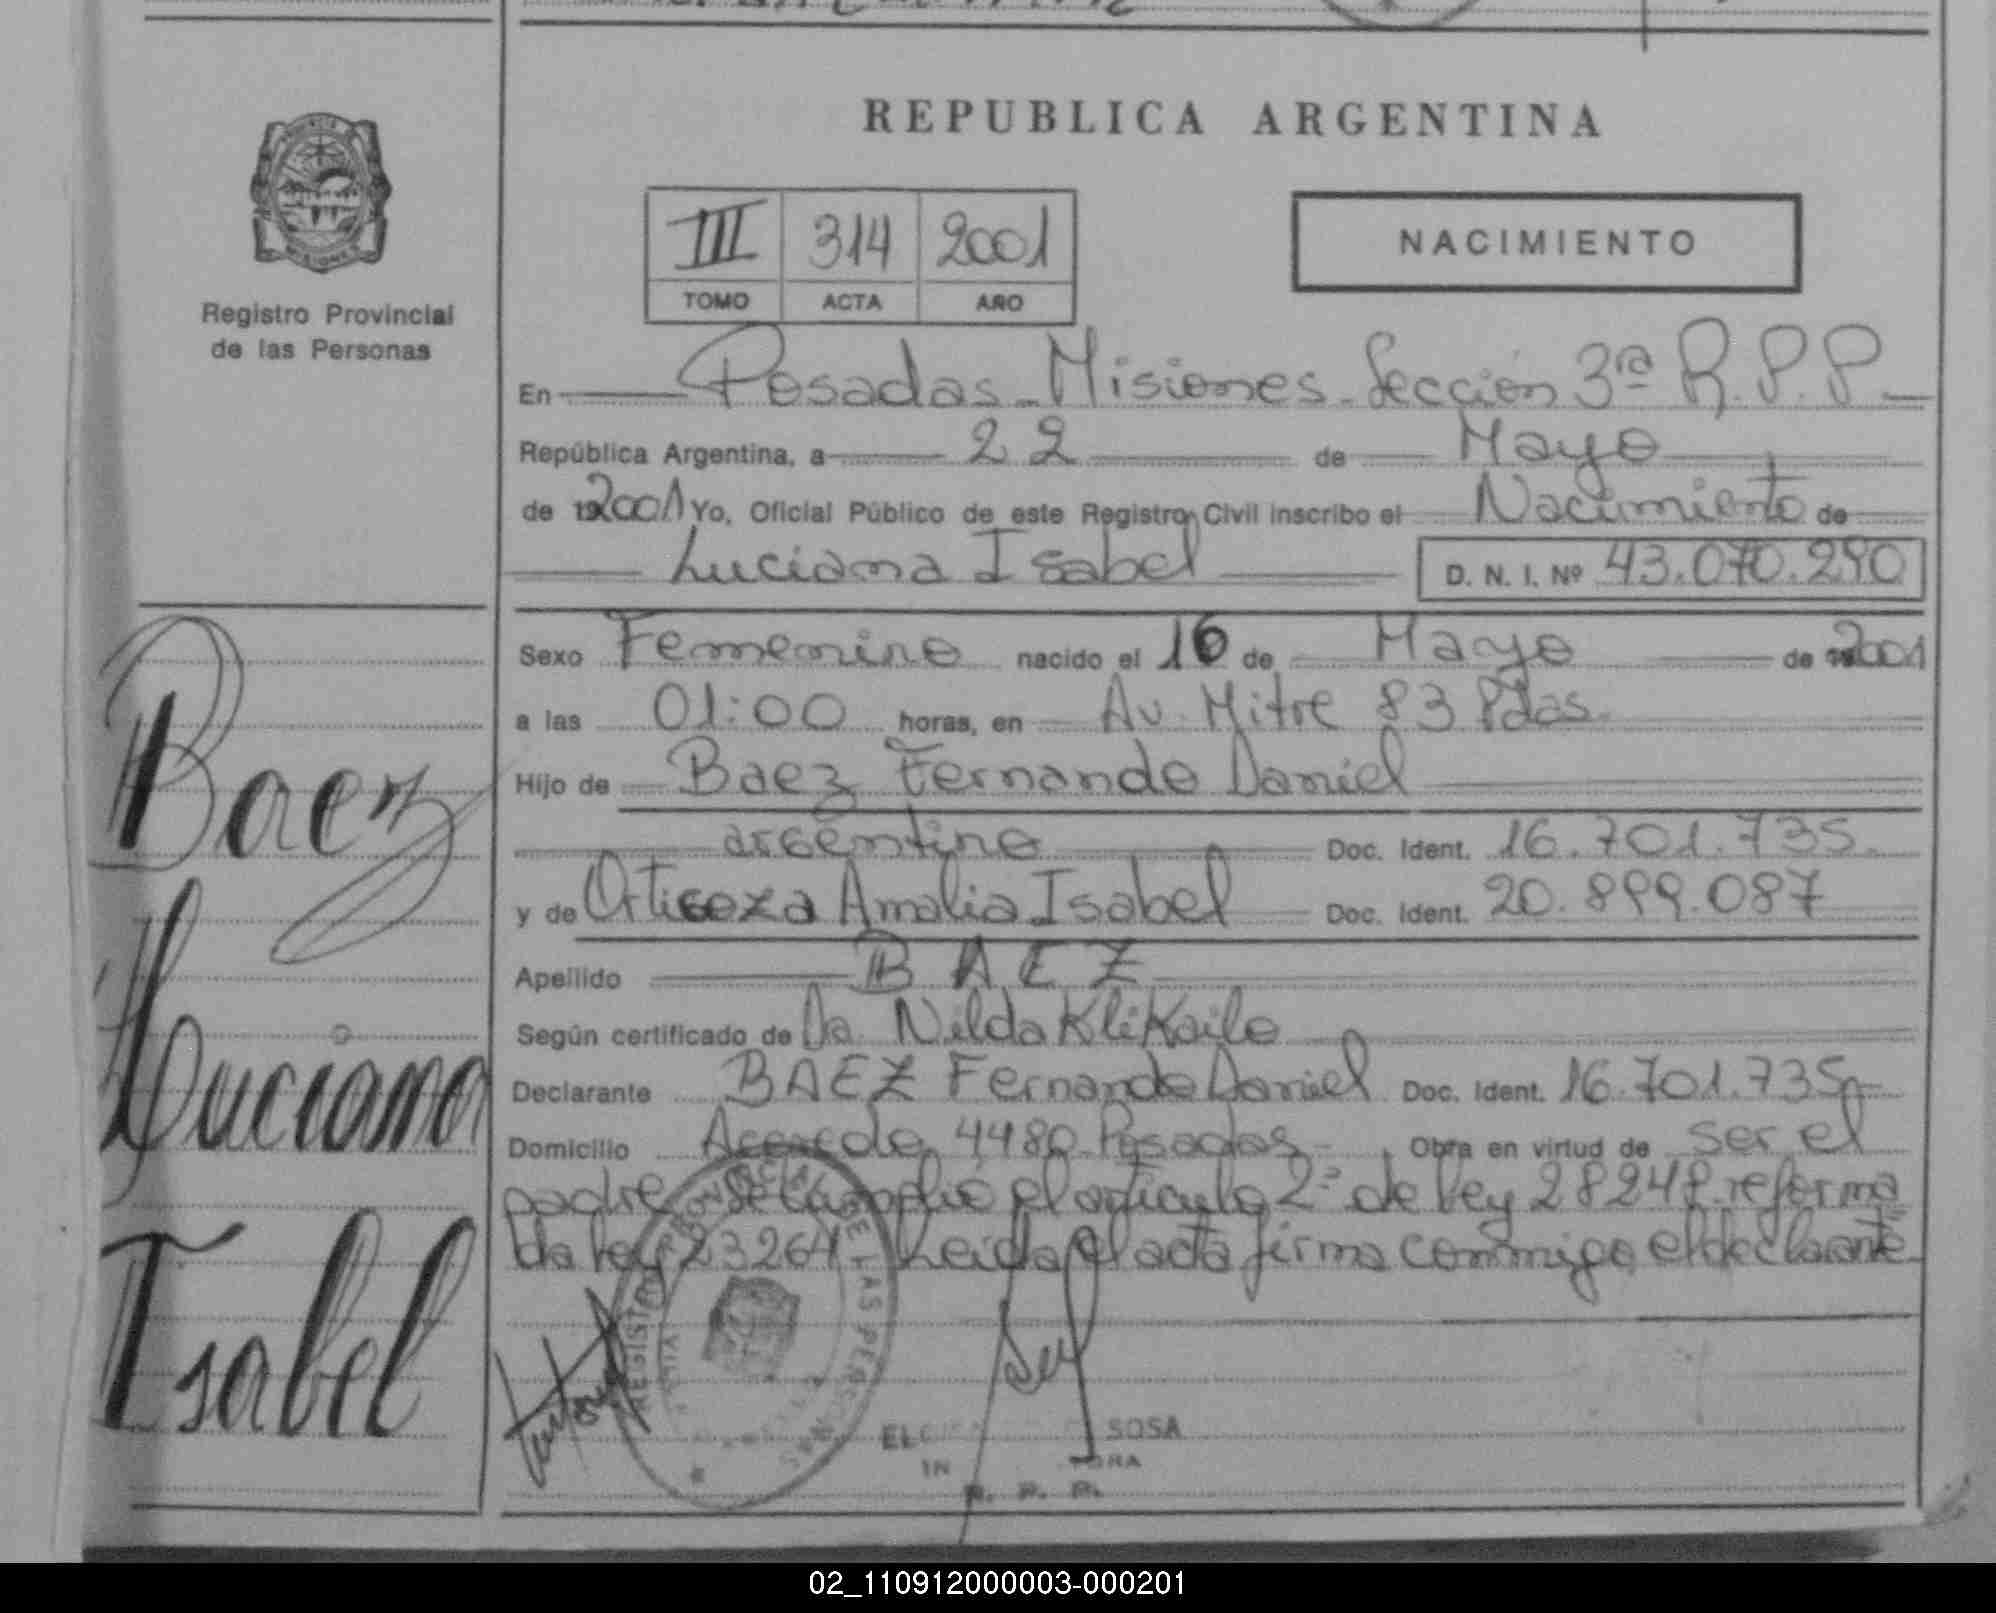 REPUBLICA ARGENTINA
III 314 2001
TOMO ACTA AÑO
NACIMIENTO
Registro Provincial
de las Personas
En Posadas Misiones Sección 3ra R.P.P
República Argentina, a 22 de Mayo
de 192001 Yo, Oficial Público de este Registro Civil inscribo el Nacimiento de
Luciana Isabel D. N. I. Nº 43.070.290
Sexo Femenino nacido el 16 de Mayo de 2001
a las 01:00 horas, en Av. Mitre 83 Pdas.
Hijo de Baez Fernando Daniel
argentino Doc. Ident. 16.701.735.
y de Amalia Isabel Doc. Ident. 20.899.087
Apellido BAEZ
Según certificado de Da. Nilda
Declarante BAEZ Fernando Daniel Doc. Ident. 16.701.735
Domicilio 4480 Posadas Obra en virtud de ser el
padre. Se cumplió el artículo 2º de ley reforma
da ley 23264 Leída el acta firma conmigo el declarante
Baez
Luciana
Isabel
REGISTRO PROVINCIAL DE LAS PERSONAS
SOSA
R. P. P.
02_110912000003-000201